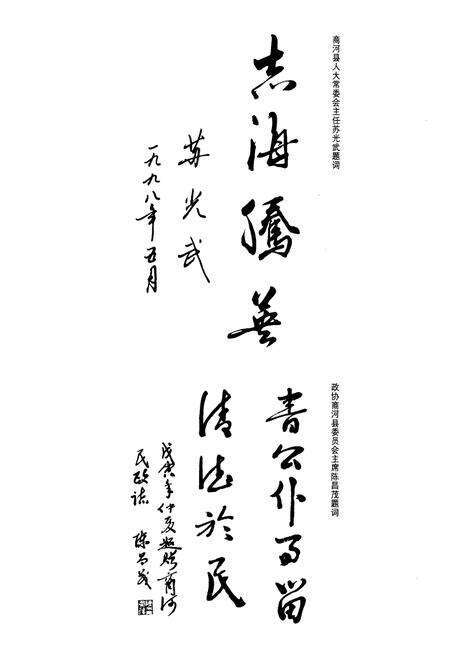 商河县人大常委会主任苏光武题词
志海腾英
苏光武
一九九八年五月
政协商河县委员会主席陈昌茂题词
书公仆为留
清德于民
戊寅年仲夏题赠商河
民政志 陈昌茂